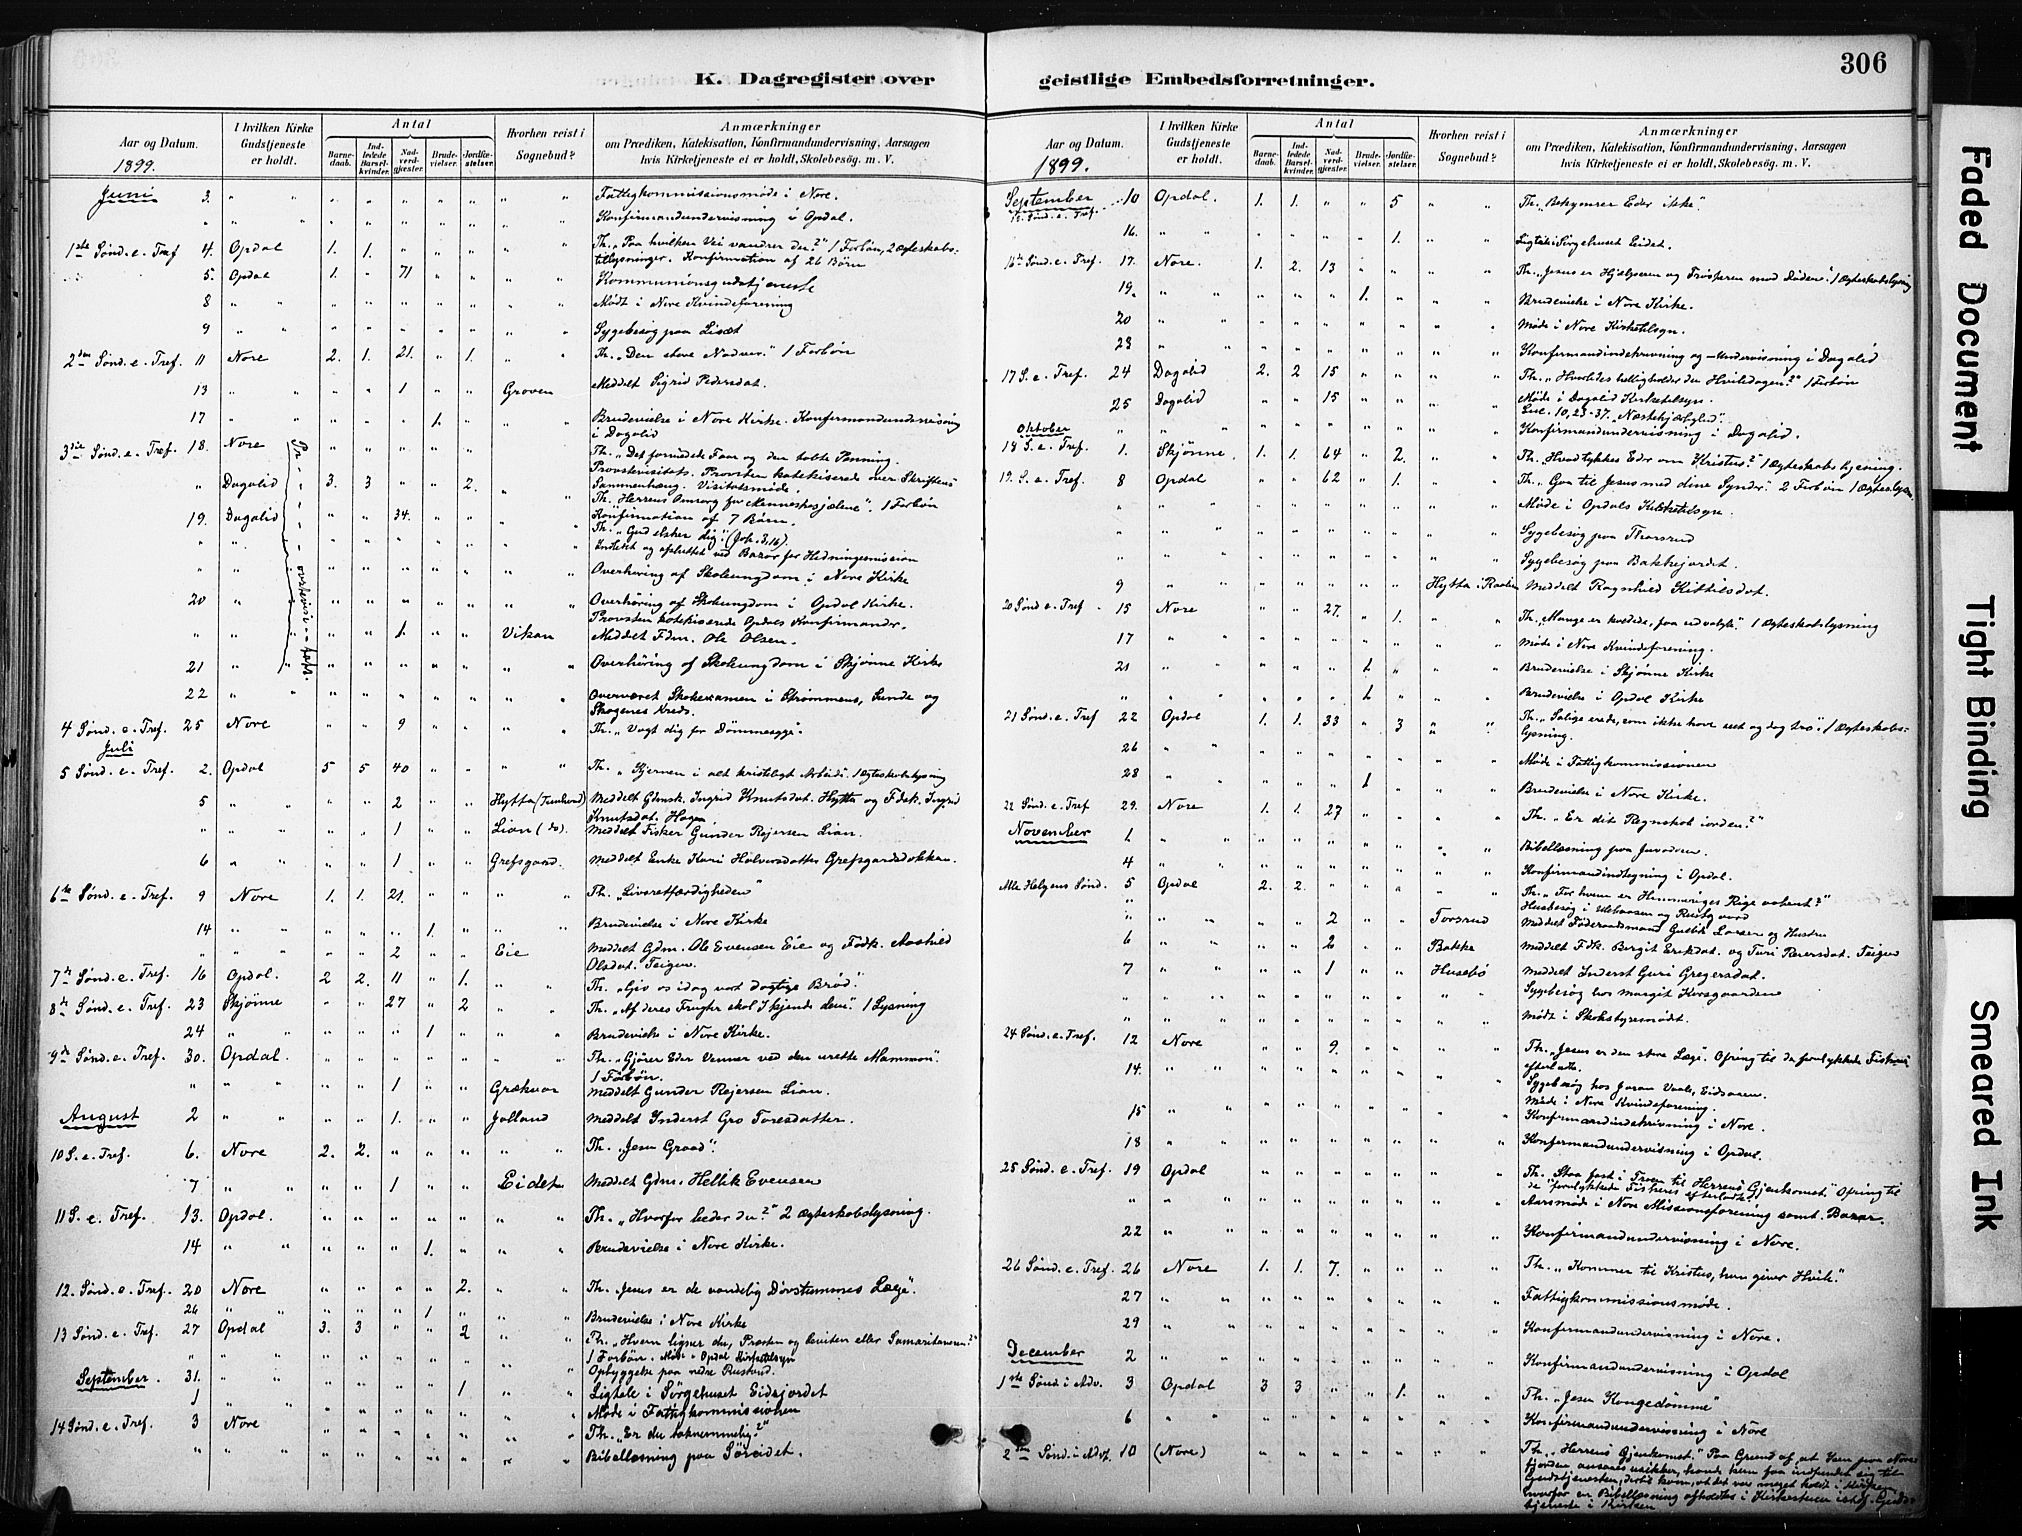 306
K. Dagregister over geistlige Embedsforretninger.
Aar og Datum. 1899.
I hvilken Kirke Gudstjeneste er holdt.
Antal
Barnedaab.
Indledede Barselkvinder.
Nadverdgjæster.
Brudevielser.
Jordfæstelser.
Hvorhen reist i Sognebud?
Anmærkninger
om Prædiken, Katekisation, Konfirmandundervisning, Aarsagen
hvis Kirketjeneste ei er holdt, Skolebesøg. m. V.
Juni 3. " " " " " " " " " Fattigkommissionsmøde i Nore.
" " " " " " " " " Konfirmandundervisning i Opdal.
1ste Sønd. e. Tref. 4. Opdal 1. 1. " " " " " Th. "Paa hvilken Vei vandrer du?" 1 Forbøn, 2 Ægteskabs-
tillysninger. Konfirmation af 26 Børn
5. Opdal 1. " 71 " " " " Kommunionsgudstjeneste
8 " " " " " " " " " Mødt i Nore Kvindeforening
9 " " " " " " " " " Sygebesøg paa Lisæt
2den Sønd. e. Tref. 11 Nore 2. 1. 21. " 1. " " Th. "Den store Nadver." 1 Forbøn
13 " " " " 1 " " Groven Meddelt Sigrid Pedersdat.
17 " " " " " 1. " " " Brudevielse i Nore Kirke. Konfirmandundervisning
i Dagalid
3die Sønd. e. Tref. 18. Nore " " " " " Th. "Det formedede Faar og den tabte Penning.
Provstevisitats. Provsten katekiserede over Skriftens
" Dagalid 3. 3 " " 2. " " Sammenhæng. Visitatsmøde.
Th. Herrens Omsorg for Menneskesjælene". 1 Forbøn
19. Dagalid " " 34. " " " " Konfirmation af 7 Børn.
Th. "Gud elsker dig." (Joh. 3.16).
Indledet og afsluttet ved Bazar for Hedningemission
Overhøring af Skoleungdom i Nore Kirke
20 " " " " " " " " Overhøring af Skoleungdom i Opdal Kirke.
Provsten katekiserede Opdals Konfirmander.
" " " " 1. " " Vikan Meddelt Fdm. Ole Olsen.
21 " " " " " " " " Overhøring af Skoleungdom i Skjønne Kirke
22 " " " " " " " " Overværet Skolexamen i Strømmens, Sunde og
Skogenes Kreds.
4 Sønd. e. Tref. 25 Nore " " 9 " " " " Th. "Vogt dig for Dømmesyge."
Juli
5 Sønd. e. Tref. 2. Opdal 5 5 40 " " " " Th. "Kjernen i alt kristeligt Arbeide. 1 Ægteskabslysning
5 " " " " 2 " " Hytta (Tunhovd) Meddelt Gdmsk. Ingrid Knutsdat. Hytta og Fdsk. Ingrid
Knutsdat. Hagen
" " " " 1 " " Lian (do). Meddelt Fisker Gunder Rejersen Lian.
6 " " " " 1 " " Grefsgard. Meddelt Enke Kari Halvorsdatter Grefsgardslokken.
6te Sønd. e. Tref. 9 Nore 1. 1. 21. " " " " Th. "Livsretfærdigheden"
14 " " " " " 1. " " " Brudevielse i Nore Kirke
" " " " 2 " " Eie Meddelt Gdm. Ole Evensen Eie og Fdsk. Aashild
Olsdat. Teigen
7de Sønd. e. Tref. 16 Opdal. 2 2. 11 " 1. " " Th. "Giv os idag vort daglige Brød."
8de Sønd. e. Tref. 23 Skjønne " " 27 " 2 " " Th. "Af deres Frugter skal I kjende dem." 1 Lysning
24 " " " " " 1 " " " Brudevielse i Nore Kirke.
9de Sønd. e. Tref. 30. Opdal. " " " " " " " Th. "Gjører Eder Venner ved den urette Mammon".
1 Forbøn.
" " " " 1 " " Meddelt Gunder Rejersen Lian.
August 2 " " " " 1. " " Jolland Meddelt Inderst Gro Toresdatter.
10 S. e. Tref. 6. Nore 2. 2. " " " " " Th. "Jesu Graad".
7 " " " " 1 " " Eidet Meddelt Gdm. Hellik Evensen
11 S. e. Tref. 13. Opdal. " " " " " " " Th. "Hvorfor beder du?" 2 Ægteskabslysning.
14 " " " " " 1. " " " Brudevielse i Nore Kirke.
12. Sønd. e. Tref. 20 Nore " " " " 2. " " Th. "Jesus er de aandelig Døvstummes Læge".
26 " " " " " 1 " " " Brudevielse i Nore Kirke
13 Sønd. e. Tref. 27 Opdal 3. 3 " " 2 " " Th. "Hvem ligner du, Presten og leviten eller Samaritanen?"
1 Forbøn. Møde i Opdal Kirketilsyn
Opbyggelse paa nedre Rustand.
September. 31. " " " " " " 1 " " Ligtale i Sørgehuset Eidsjordet
1 " " " " " " " " " Møde i Fattigkommissionen
14 Sønd. e. Tref. 3 Nore " " " " " " " Th. "Er du taknemmelig?"
" " " " " " " " " Bibellæsning paa Søreidet.
Provstevisitats.
Aar og Datum. 1899.
I hvilken Kirke Gudstjeneste er holdt.
Antal
Barnedaab.
Indledede Barselkvinder.
Nadverdgjæster.
Brudevielser.
Jordfæstelser.
Hvorhen reist i Sognebud?
Anmærkninger
om Prædiken, Katekisation, Konfirmandundervisning, Aarsagen
hvis Kirketjeneste ei er holdt, Skolebesøg. m. V.
September 10 Opdal. 1. 1. " " 5 " " Th. "Bekymrer Eder ikke".
15. Sønd. e. Tref.
16. " " " " " " 1. " " Ligtale i Sørgehuset Eidet.
16de Sønd. e. Tref. 17. Nore. 1. 2. 13 " " " " Th. "Jesus er Hjælperen og Trøsteren mod Døden". 1 Ægteskabslysning
19. " " " " " 1. " " " Brudevielse i Nore Kirke.
20 " " " " " " " " " Møde i Nore Kirketilsyn.
23 " " " " " " " " " Konfirmandindskrivning og -undervisning i Dagalid
17 S. e. Tref. 24 Dagalid 2. 2 15 " " " " Th. "Hvorledes helligholder du Hviledagen?" 1 Forbøn
25 Dagalid " " 15 " " " " Møde i Dagalid Kirketilsyn.
Luc. 10, 23-37. "Næstekjærlighed".
Oktober " " " " " " " " Konfirmandundervisning i Dagalid.
18 S. e. Tref. 1. Skjønne 1. 1. 64 " 2. " " Th. "Hvad tykkes Eder om Kristus?" 1 Ægteskabslysning.
19. S. e. Tref. 8 Opdal " " 62 " 1. " " Th. "Gaa til Jesus med dine Synder." 2 Forbøn 1 Ægteslysn.
" " " " " " " " " Møde i Opdals Kirketilsyn.
" " " " " " " " " Sygebesøg paa Thorsrud
" " " " " " " " " Sygebesøg paa Bakkejordet.
9 " " " " " " " Hytta i Meddelt Ragnhild Kittilsdat.
20 Sønd e. Tref 15 Nore " " 27. " 1. " " Th. "Mange er kaldede, faa udvalgte". 1 Ægteskabslysning
17 " " " " " " " " " Møde i Nore Kvindeforening.
21 " " " " " 1 " " " Brudevielse i Skjønne Kirke
" " " " " 1 " " " Brudevielse i Opdal Kirke
21 Sønd. e. Tref 22 Opdal 1. 1. 33 " 3 " " Th. "Salige er de, som ikke have seet og dog tro". 1 Ægteskabs-
lysning.
26 " " " " " " " " " Møde i Fattigkommissionen
28 " " " " " 1 " " " Brudevielse i Nore Kirke.
22 Sønd. e. Tref 29. Nore 1. 1. 27 " " " " Th. "Er dit Regnskab iorden?"
November 1 " " " " " " " " " Bibellæsning paa
4 " " " " " " " " " Konfirmandindtegning i Opdal.
Alle Helgens Sønd. 5 Opdal 2. 2. " " " " " Th. "For hvem er Himmeriges Rige aabent?"
Husbesøg i og
" " " " 2 " " Torsrud Meddelt Føderaadsmand Gullik Larsen og Hustru
6 " " " " 2 " " Bakke Meddelt Fdk. Bergit Eriksdat. og Turi Reiersdat. Teigen
7 " " " " 1 " " Husebø Meddelt Inderst Guri Gregersdat.
" " " " " " " " " Sygebesøg hos Margit Korsgaarden
" " " " " " " " " Mødt i Skolestyremødt.
24 Sønd. e. Tref. 12 Nore " " 9. " " " " Th. "Jesus er den store Læge". Ofring til de forulykkede Fiskeres
efterladte.
14. " " " " " " " " " Sygebesøg hos Joran Eidsaasen.
Møde i Nore Kvindeforening.
15 " " " " " " " " " Konfirmandindskrivning i Nore.
18 " " " " " " " " " Konfirmandundervisning i Opdal.
25 Sønd. e. Tref. 19 Opdal " " " " " " " Th. Staa fast i Troen til Herrens Gjenkomst." Ofring til
de forulykkede Fiskeres efterladte.
" " " " " " " " " Aarsmøde i Nore Missionsforening samt Bazar.
22 " " " " " " " " " Konfirmandundervisning i Nore.
26 Sønd. e. Tref. 26 Nore 1. 1. 7. " " " " Th. "Kommer til Kristus, han giver Hvile."
27 " " " " " " " " " Fattigkommissionsmøde.
29 " " " " " " " " " Konfirmandundervisning i Nore.
December 2 " " " " " " " " " Konfirmandundervisning i Opdal
1ste Sønd i Adv. 3 Opdal 3 3 " " 1. " " Th. "Jesu Kongedømme"
6 " " " " " " " " " Konfirmandundervisning i Nore
2den Sønd. i Adv. 10 (Nore) " " " " " " " Th. "Herrens Gjenkomst." Paa Grund af at Isen paa Nore-
fjorden ansaaes usikker, havde kun faa indfundet sig til
Gudstjenesten, dertil kom, at det var meget koldt i Kirken,
hvorfor en Bibellæsning afholdtes i Kirkestuen istdf. Guds-
tjeneste i Kirken
Faded Document
Tight Binding
Smeared Ink